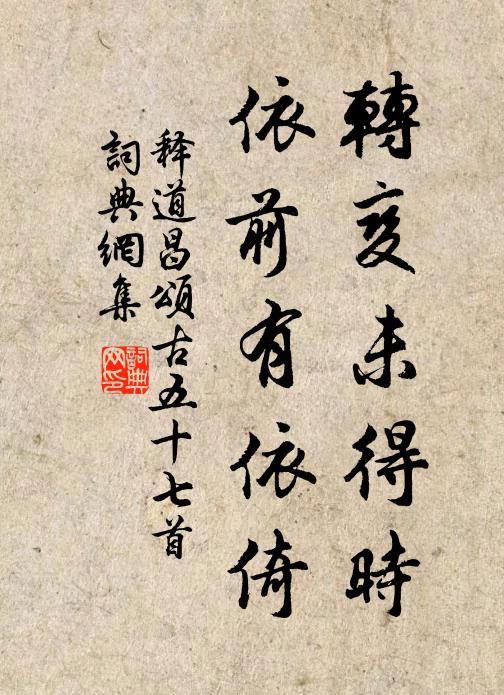 轉變未得時
依前有依倚
释道昌頌古五十七首
詞典網集
詞典网印